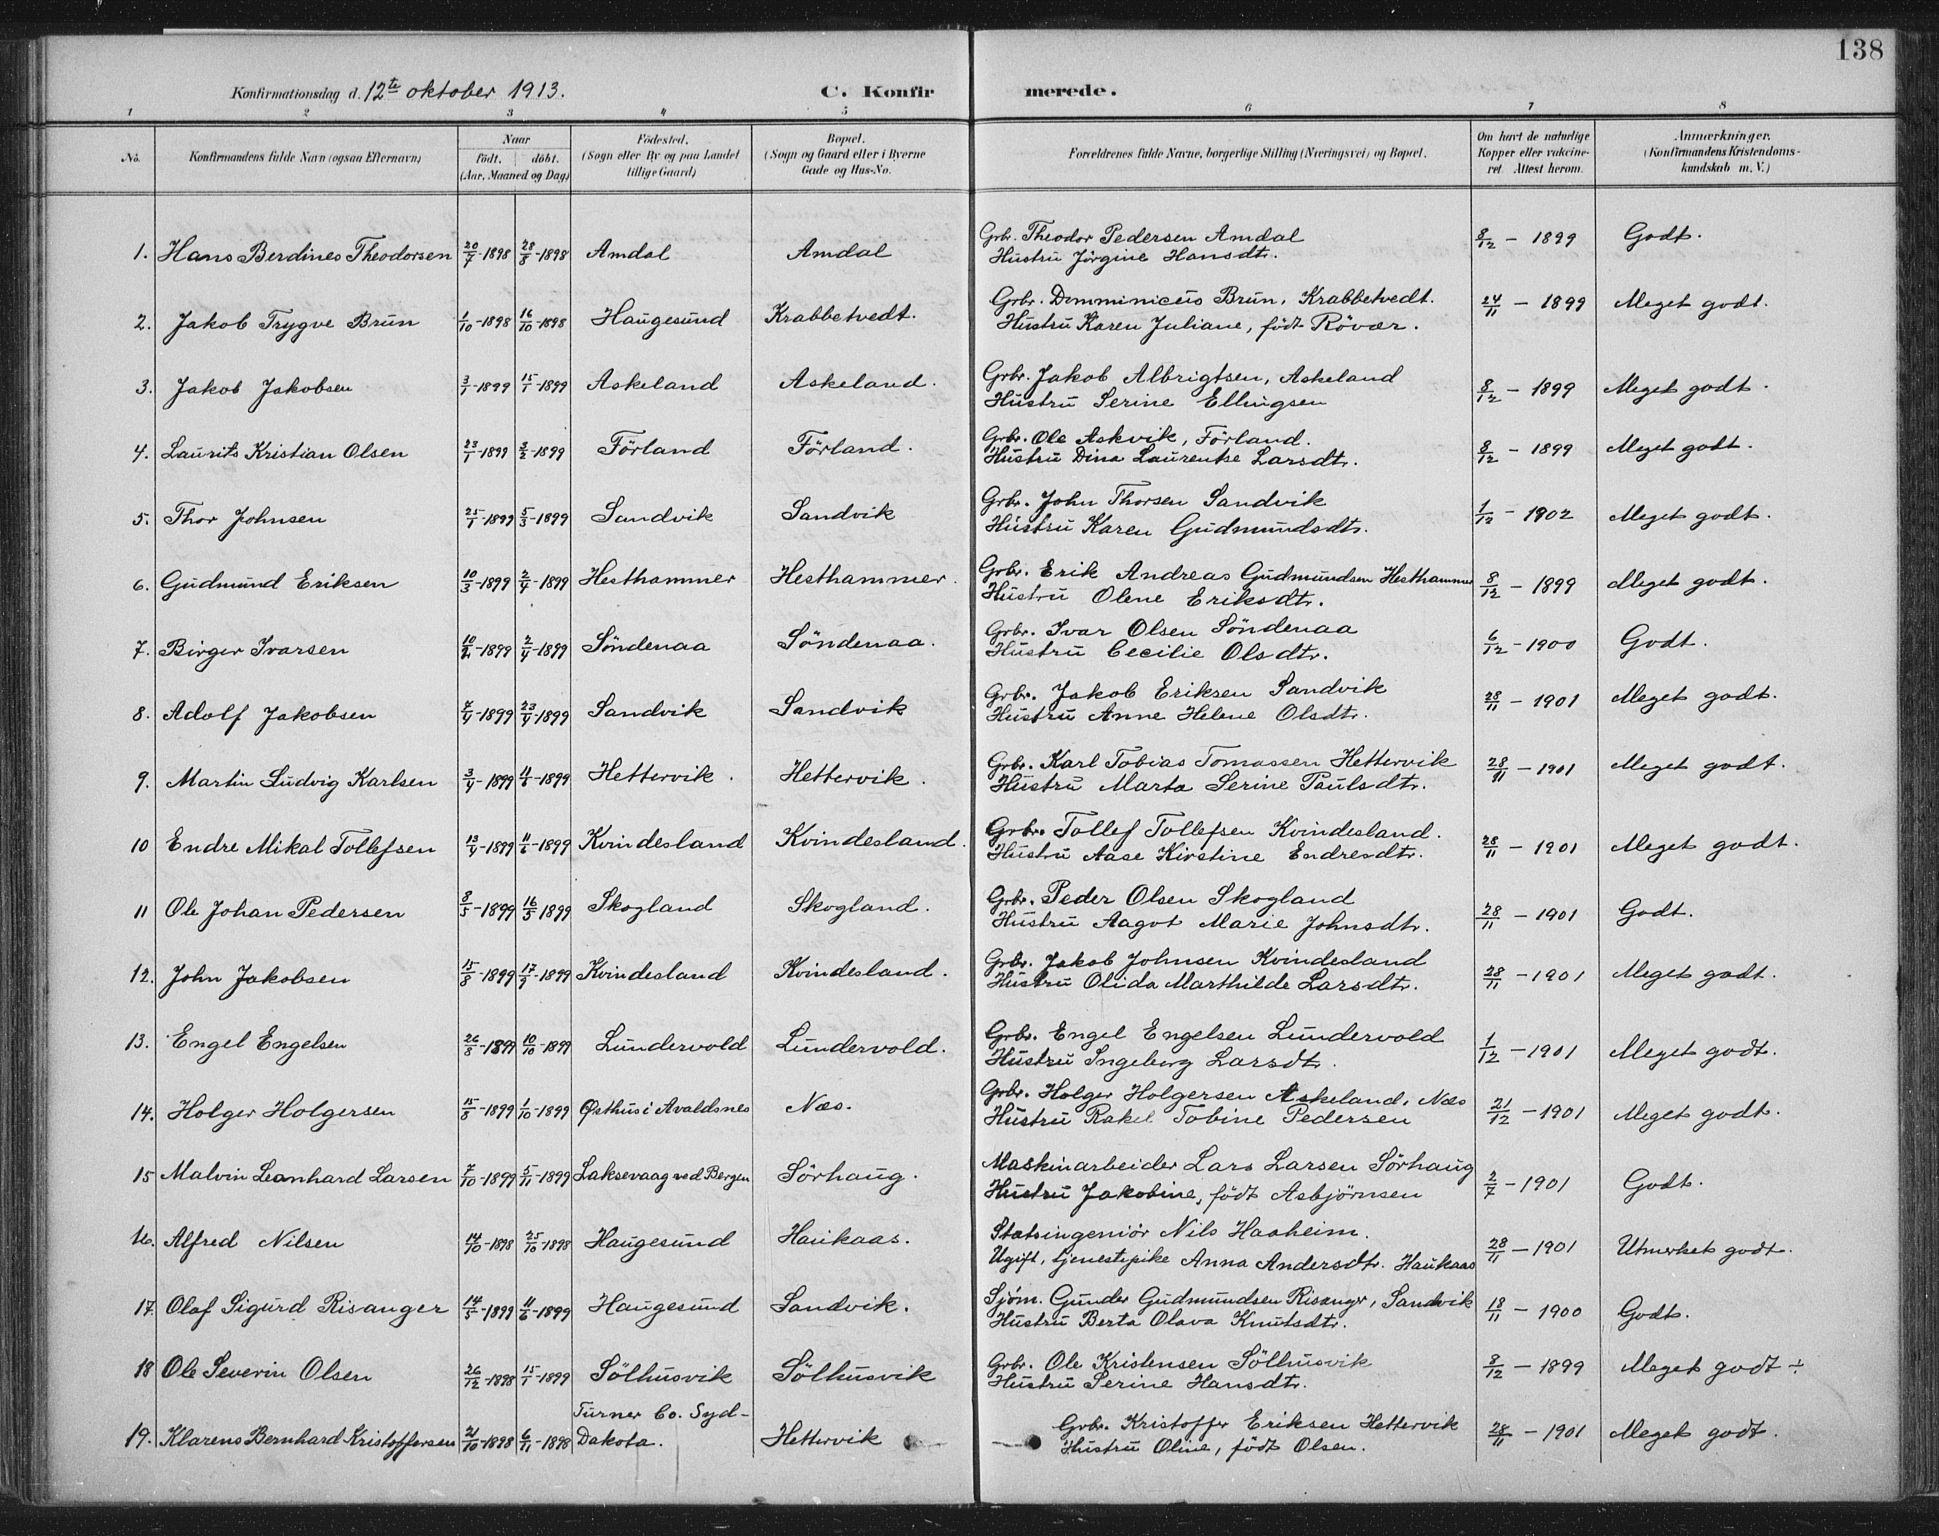 138
Konfirmationsdag d. 12te oktober 1913. C. Konfirmerede.
1 2 3 4 5 6 7 8
No. Konfirmandens fulde Navn (ogsaa Efternavn) Naar født. døbt. (Aar, Maaned og Dag) Fødested. (Sogn eller By og paa Landet tillige Gaard) Bopæl. (Sogn og Gaard eller i Byerne Gade og Hus-No. Forældrenes fulde Navne, borgerlige Stilling (Næringsvei) og Bopæl. Om havt de naturlige Kopper eller vakcineret Attest herom. Anmærkninger. (Konfirmandens Kristendomskundskab m. V.)
1. Hans Berdines Theodorsen 20/7-1898 28/8-1898 Amdal Amdal Grbr. Theodor Pedersen Amdal 8/12 - 1899 Godt.
Hustru Jörgine Hansdtr.
2. Jakob Trygve Brun 1/10-1898 16/10-1898 Haugesund Krabbetvedt. Grbr. Domminicus Brun, Krabbetvedt. 24/11 - 1899 Meget godt.
Hustru Karen Juliane, født Rövær.
3. Jakob Jakobsen 3/1-1899 15/1-1899 Askeland Askeland. Grbr. Jakob Albrigtsen, Askeland 8/12 - 1899 Meget godt.
Hustru Serine Ellingsen
4. Laurits Kristian Olsen 23/1-1899 3/2-1899 Förland Förland. Grbr. Ole Askvik, Förland. 8/12 - 1899 Meget godt.
Hustru Dina Laurentse Larsdtr.
5. Thor Johnsen 25/1-1899 5/3-1899 Sandvik Sandvik Grbr. John Thorsen Sandvik 1/12 - 1902 Meget godt.
Hustru Karen Gudmundsdtr.
6. Gudmund Eriksen 10/3-1899 2/4-1899 Hesthammer Hesthammer. Grbr. Erik Andreas Gudmundsen Hesthammer 8/12 - 1899 Meget godt.
Hustru Olene Eriksdtr.
7. Birger Ivarsen 10/2-1899 2/4-1899 Söndenaa Söndenaa. Grbr. Ivar Olsen Söndenaa 6/12 - 1900 Godt.
Hustru Cecilie Olsdtr.
8. Adolf Jakobsen 7/4-1899 23/4-1899 Sandvik Sandvik Grbr. Jakob Eriksen Sandvik 28/11 - 1901 Meget godt.
Hustru Anne Helene Olsdtr.
9. Martin Ludvig Karlsen 3/4-1899 11/6-1899 Hettervik. Hettervik. Grbr. Karl Tobias Tomassen Hettervik 28/11 - 1901 Meget godt.
Hustru Marta Serine Paulsdtr.
10 Endre Mikal Tollefsen 13/4-1899 11/6-1899 Kvindesland Kvindesland. Grbr. Tollef Tollefsen Kvindesland. 28/11 - 1901 Meget godt.
Hustru Aase Kirstine Endresdtr.
11 Ole Johan Pedersen 8/5-1899 16/5 1899 Skogland Skogland. Grbr. Peder Olsen Skogland 28/11 - 1901 Godt.
Hustru Aagot Marie Johnsdtr.
12. John Jakobsen 15/8-1899 17/9-1899 Kvindesland Kvindesland. Grbr. Jakob Johnsen Kvindesland 28/11 - 1901 Meget godt.
Hustru Olida Marthilde Larsdtr.
13. Engel Engelsen 26/8-1899 10/10-1899 Lundervold Lundervold. Grbr. Engel Engelsen Lundervold 1/12 - 1901 Meget godt.
Hustru Ingeborg Larsdtr.
14. Holger Holgersen 15/8-1899 1/10-1899 Østhus i Avaldsnes Næs. Grbr. Holger Holgersen Askeland, Næs 21/12 - 1901 Meget godt.
Hustru Rakel Tobine Pedersen
15 Malvin Leonhard Larsen 7/10-1899 5/11-1899 Laksevaag ved Bergen Sörhaug. Maskinarbeider Lars Larsen Sörhaug 2/7 - 1901 Godt.
Hustru Jakobine, født Asbjörnsen
16. Alfred Nilsen 14/10-1898 25/10-1898 Haugesund Haukaas. Statsingeniör Nils Haaheim. 28/11 - 1901 Utmerket godt.
Ugift, tjenestepike Anna Andersdtr. Haukaas
17. Olaf Sigurd Risanger 14/5-1899 11/6-1899 Haugesund Sandvik. Sjöm. Gunder Gudmundsen Risanger, Sandvik 18/11 - 1900 Godt.
Hustru Berta Olava Knutsdtr.
18 Ole Severin Olsen 26/12-1898 15/1-1899 Sölhusvik Sölhusvik Grbr. Ole Kristensen Sölhusvik 8/12 - 1899 Meget godt ÷
Hustru Serine Hansdtr.
19. Klarens Bernhard Kristoffersen 21/10-1898 6/11-1898 Turner Co. Syd-Dakota. Hettervik Grbr. Kristoffer Eriksen Hettervik 28/11 - 1901 Meget godt.
Hustru Oline, født Olsen.